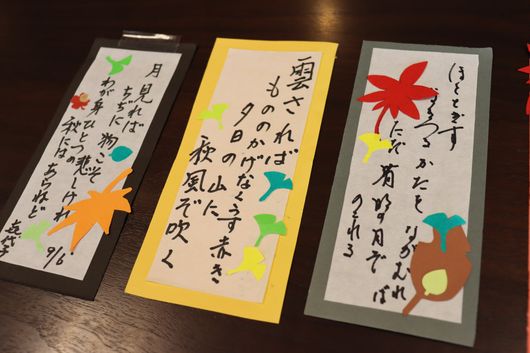 ほととぎす
なきつる かたを ながむれば
ただ 有明の月ぞ
のこれる
雲されば
もののかげなくうす赤き
夕日の山に
秋風ぞ吹く
月 見れば
ちぢに 物こそ 悲しけれ
わが身ひとつの
秋にはあらねど
9/6